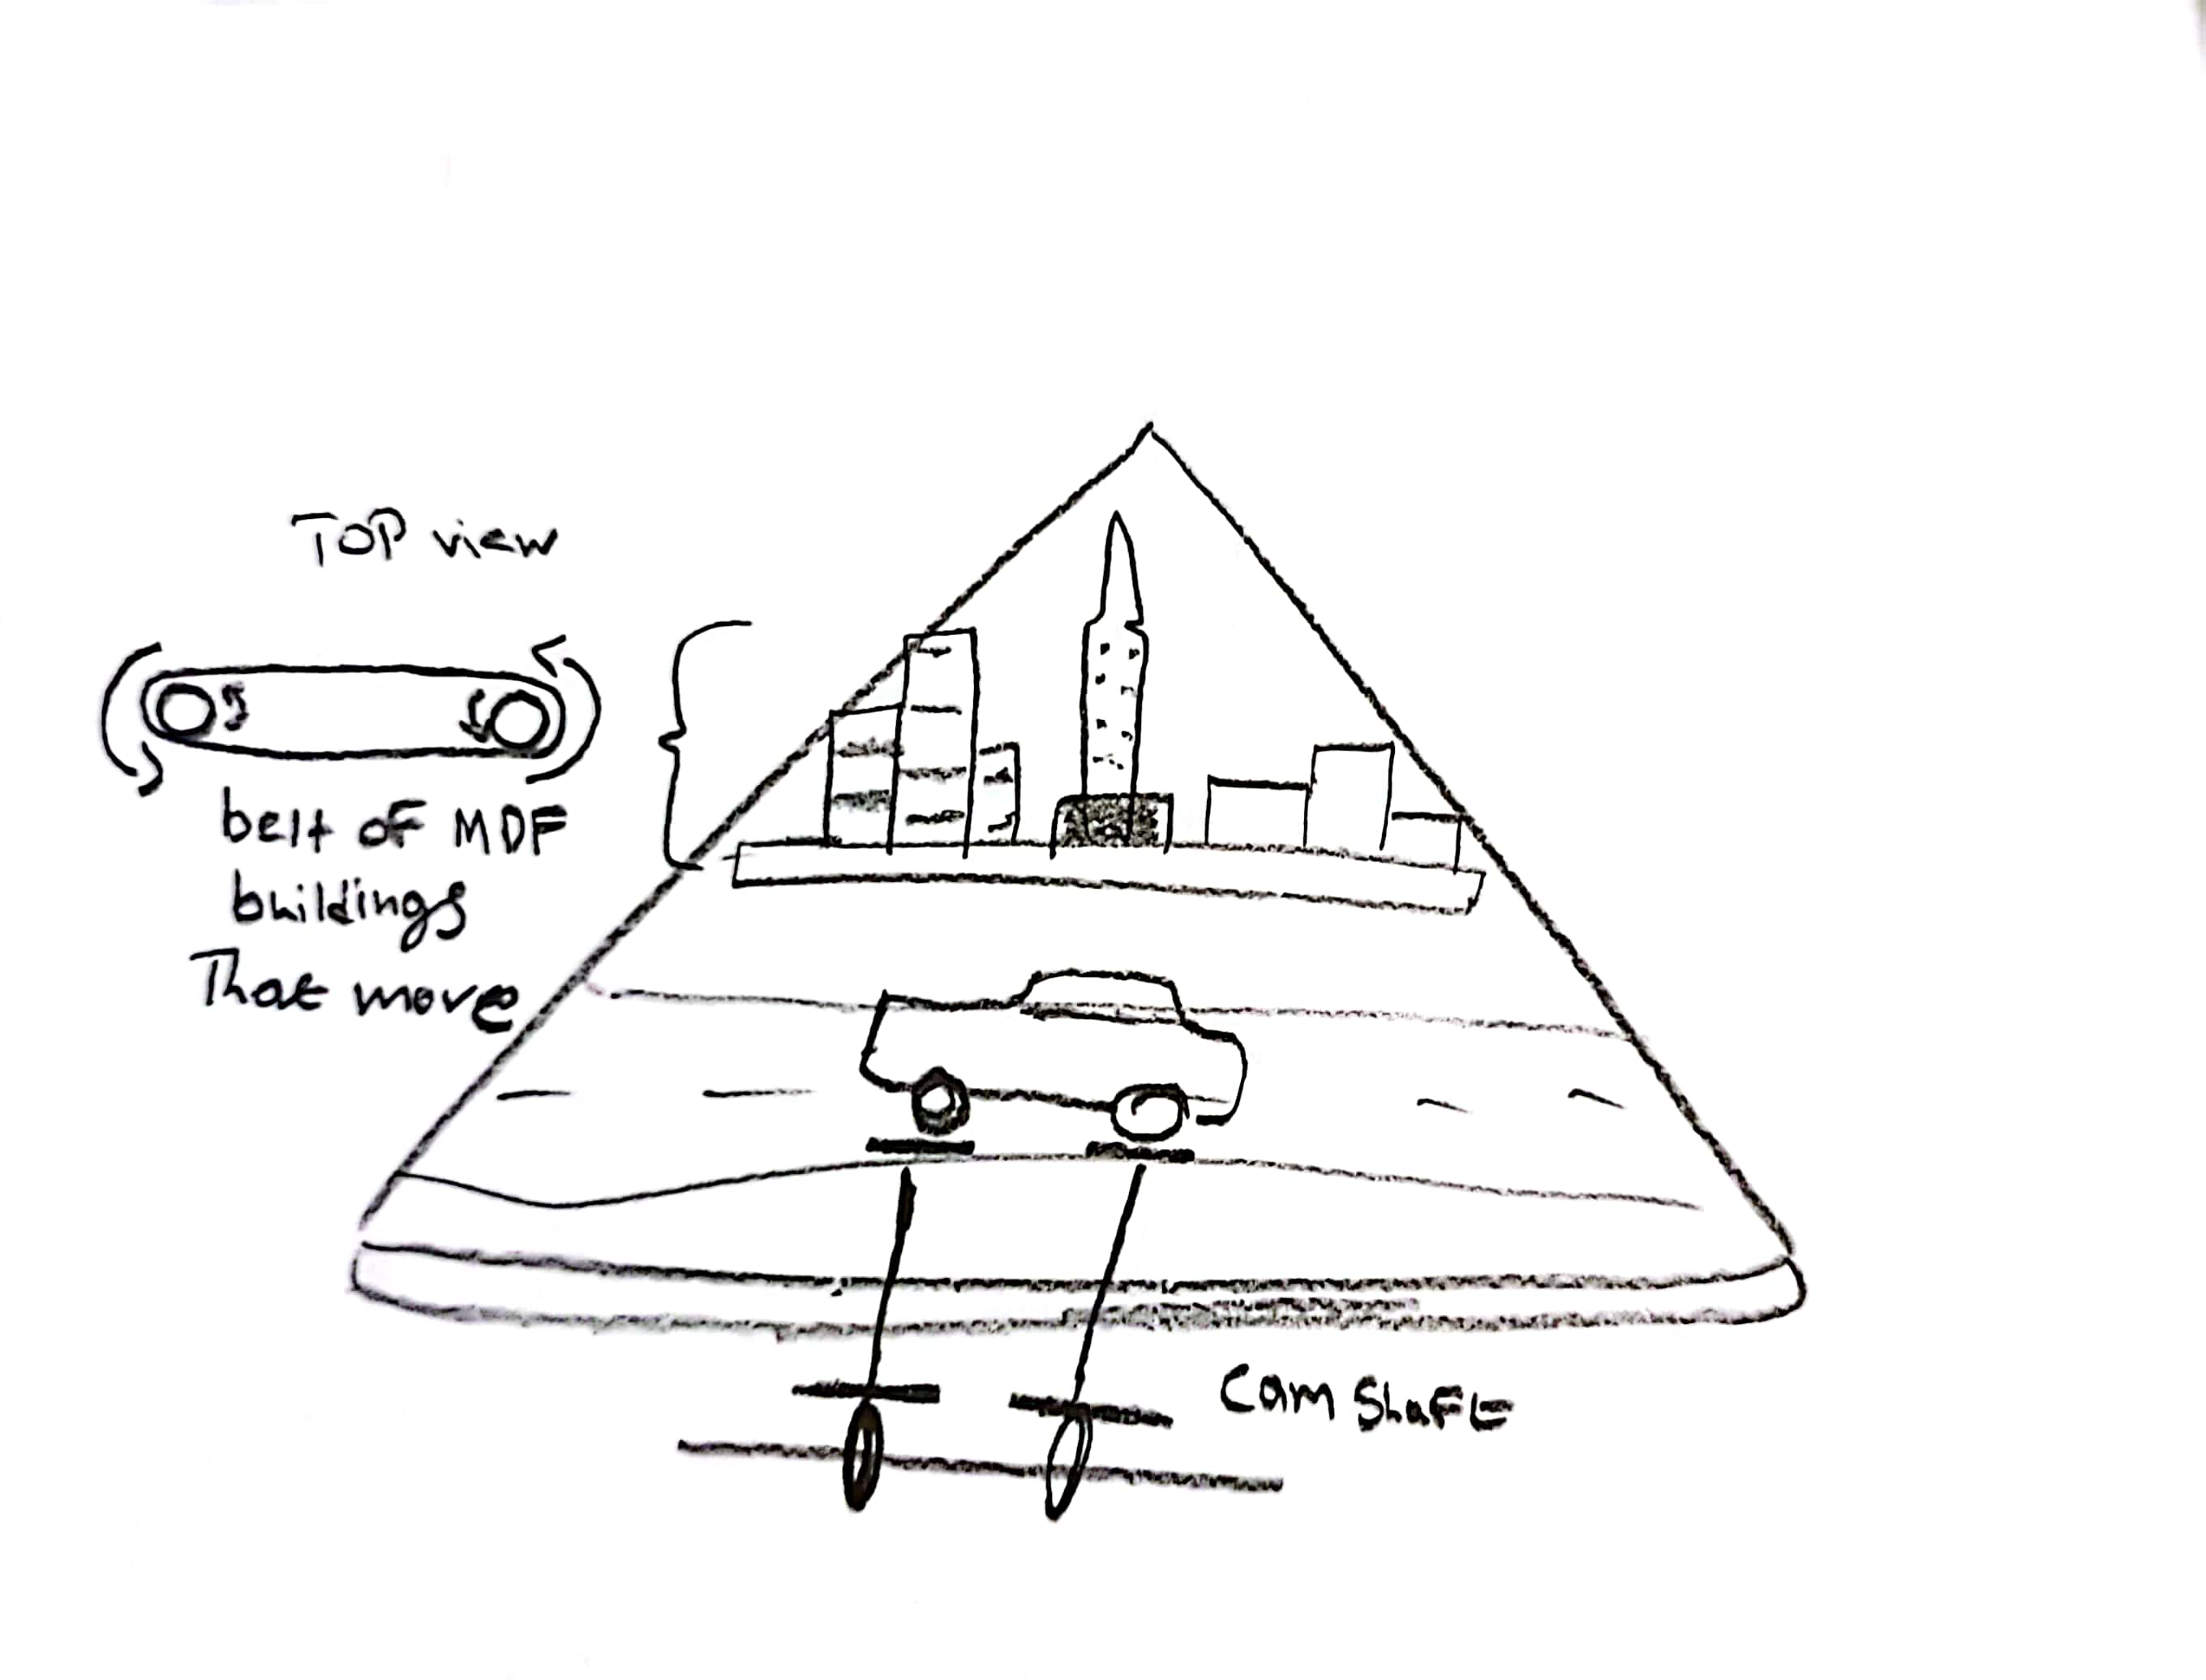 TOP view
belt of MDF
buildings
That move
Cam Shaft